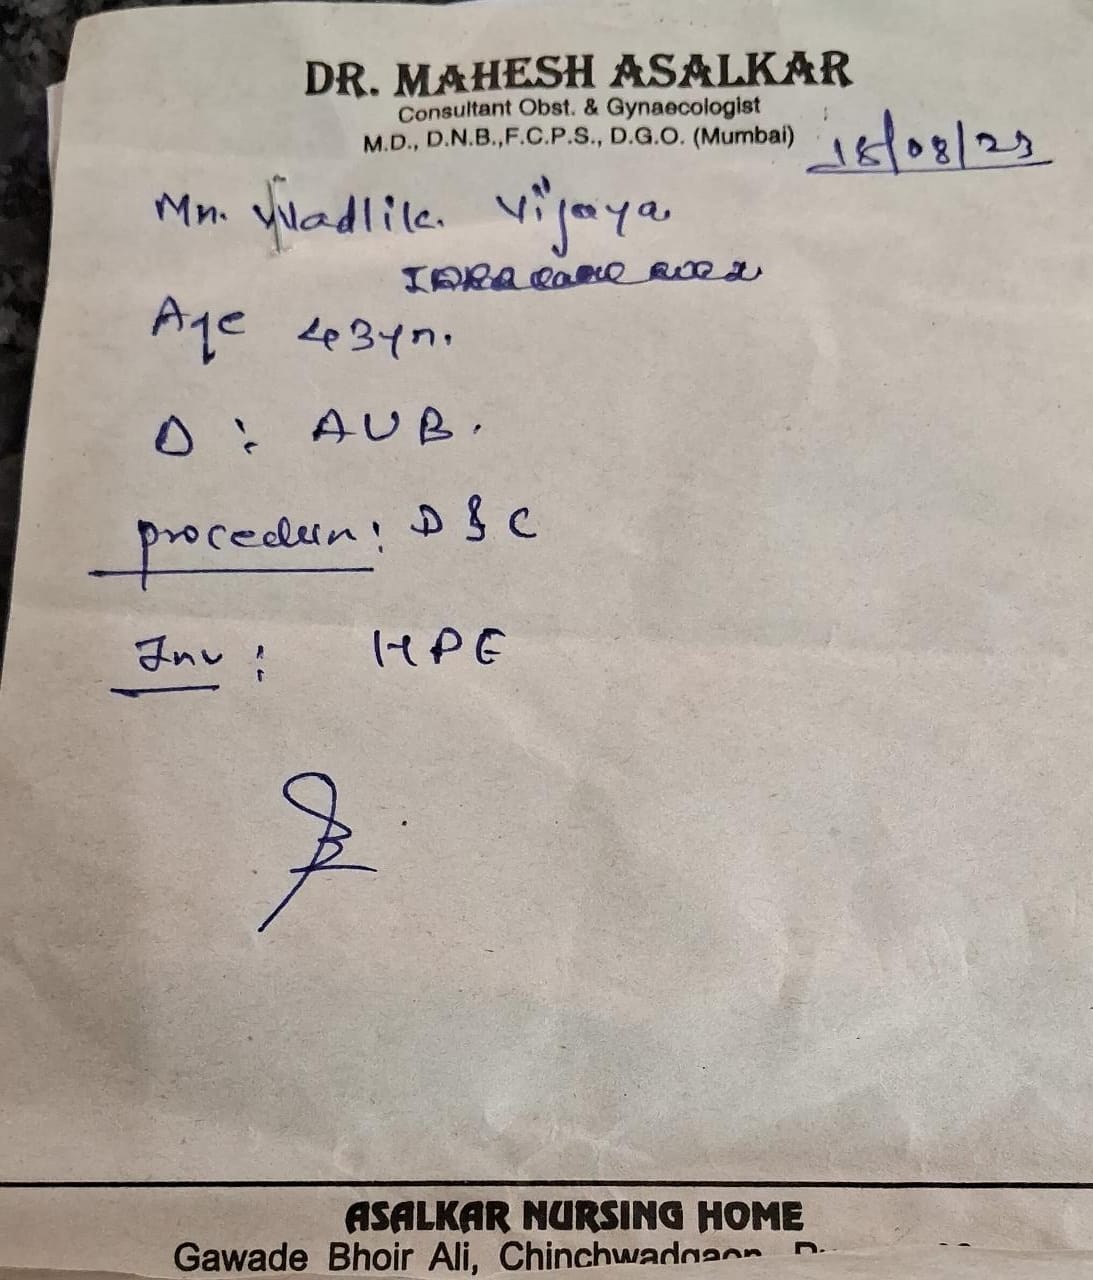 DR. MAHESH ASALKAR
Consultant Obst. & Gynaecologist
M.D., D.N.B.,F.C.P.S., D.G.O. (Mumbai)
18/08/23
Mrs. Wadlik. Vijaya
Age 43yr.
D : AUB.
procedure: D & C
Inv : HPE
ASALKAR NURSING HOME
Gawade Bhoir Ali, Chinchwadgaon